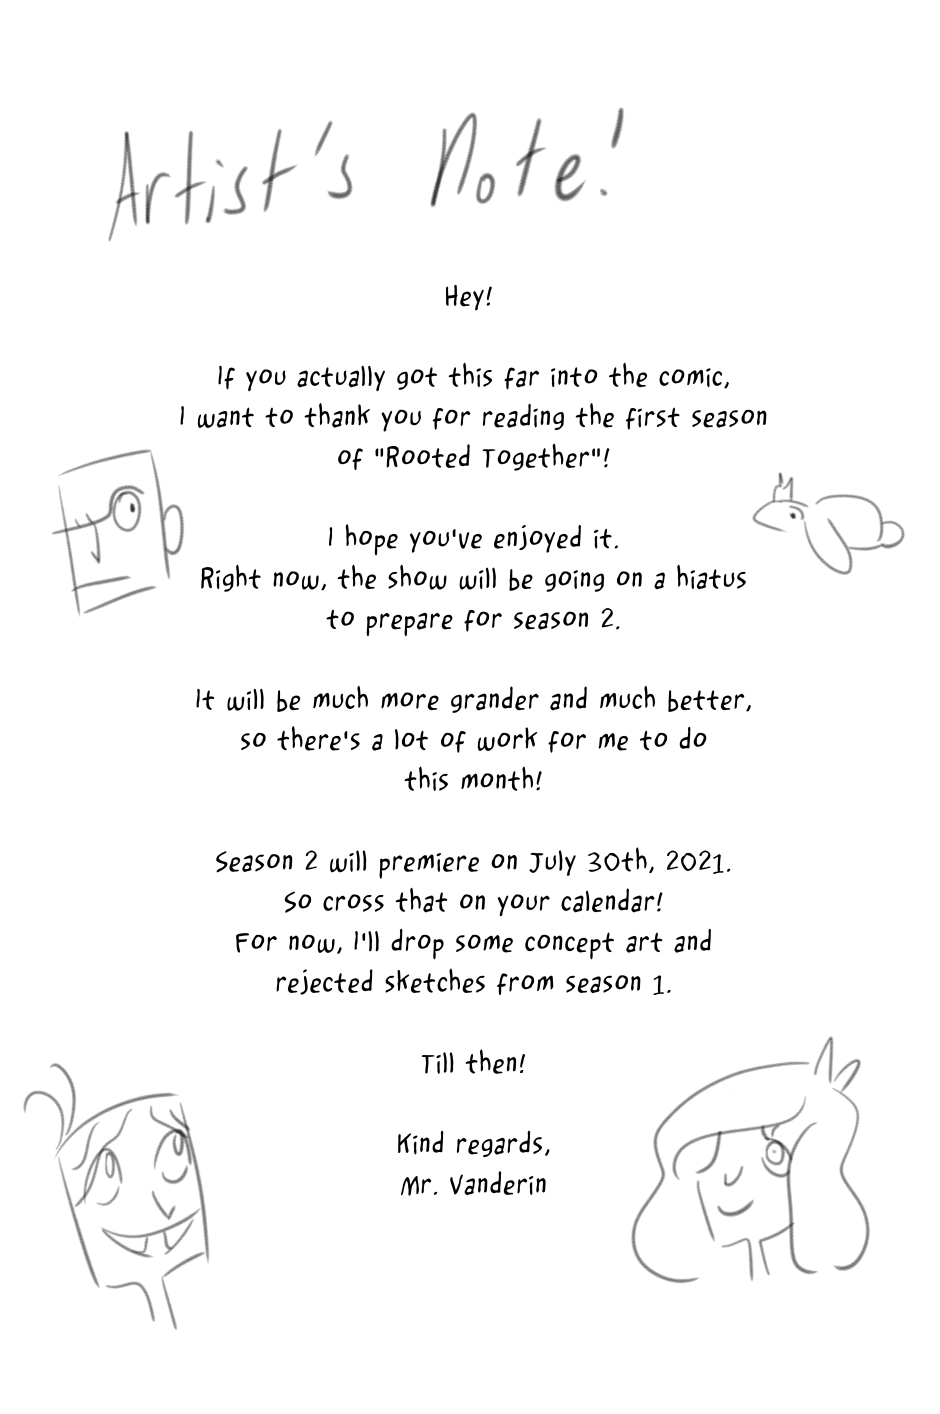 Artist's Note!
Hey!
If you actually got this far into the comic,
I want to thank you for reading the first season
of "Rooted Together"!
I hope you've enjoyed it.
Right now, the show will be going on a hiatus
to prepare for season 2.
It will be much more grander and much better,
so there's a lot of work for me to do
this month!
Season 2 will premiere on July 30th, 2021.
So cross that on your calendar!
For now, I'll drop some concept art and
rejected sketches from season 1.
Till then!
Kind regards,
Mr. Vanderin